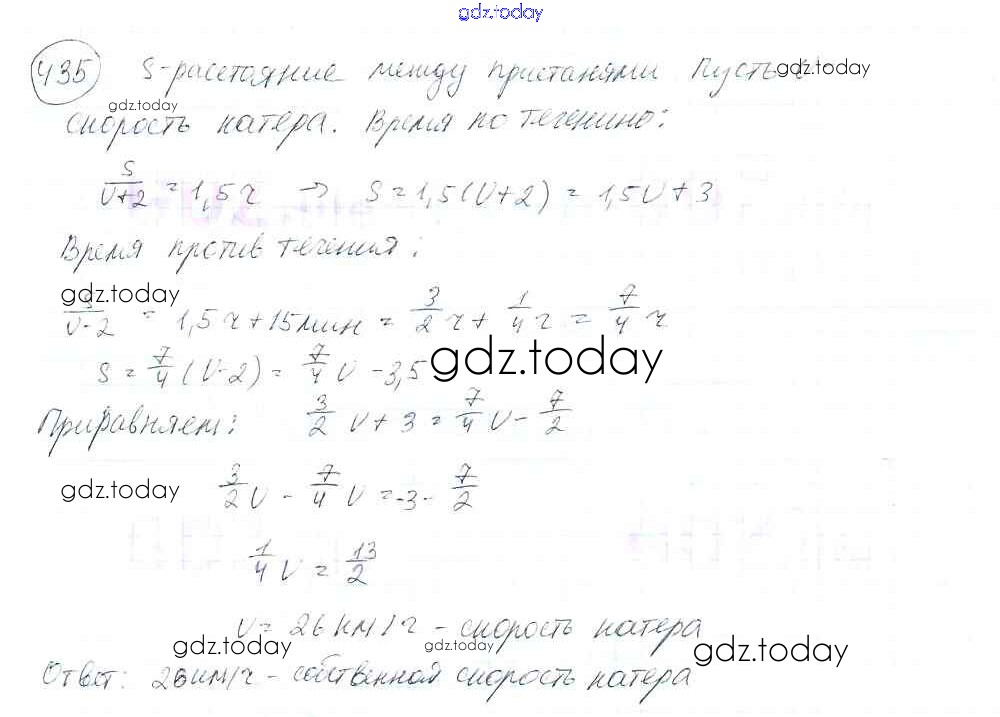 gdz.today
435 S-расстояние между пристанями Пусть gdz.today
gdz.today
скорость катера. Время по течению:
S/(V+2) = 1,5ч → S = 1,5(V+2) = 1,5V + 3
Время против течения:
gdz.today
S/(V-2) = 1,5ч + 15мин = 3/2 ч + 1/4 ч = 7/4 ч
S = 7/4 (V-2) = 7/4 V - 3,5 gdz.today
Приравняем: 3/2 V + 3 = 7/4 V - 7/2
gdz.today 3/2 V - 7/4 V = -3 - 7/2
1/4 V = 13/2
V = 26 км/ч - скорость катера
gdz.today gdz.today gdz.today
Ответ: 26 км/ч - собственная скорость катера